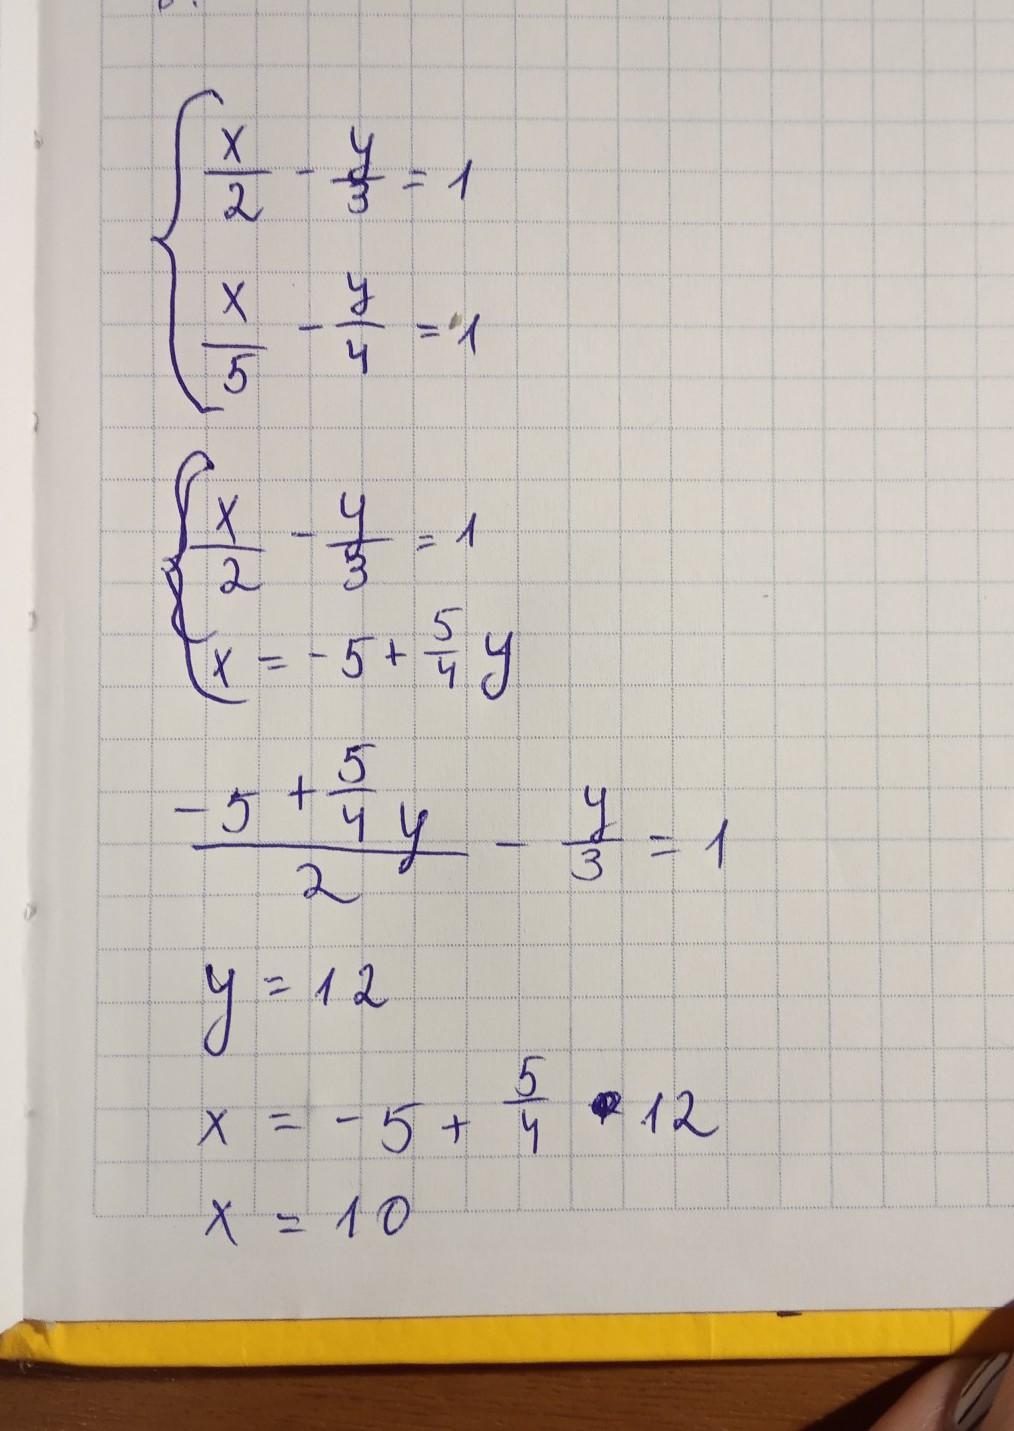 x/2 - y/3 = 1
x/5 - y/4 = 1
x/2 - y/3 = 1
x = -5 + 5/4 y
(-5 + 5/4 y)/2 - y/3 = 1
y = 12
x = -5 + 5/4 · 12
x = 10